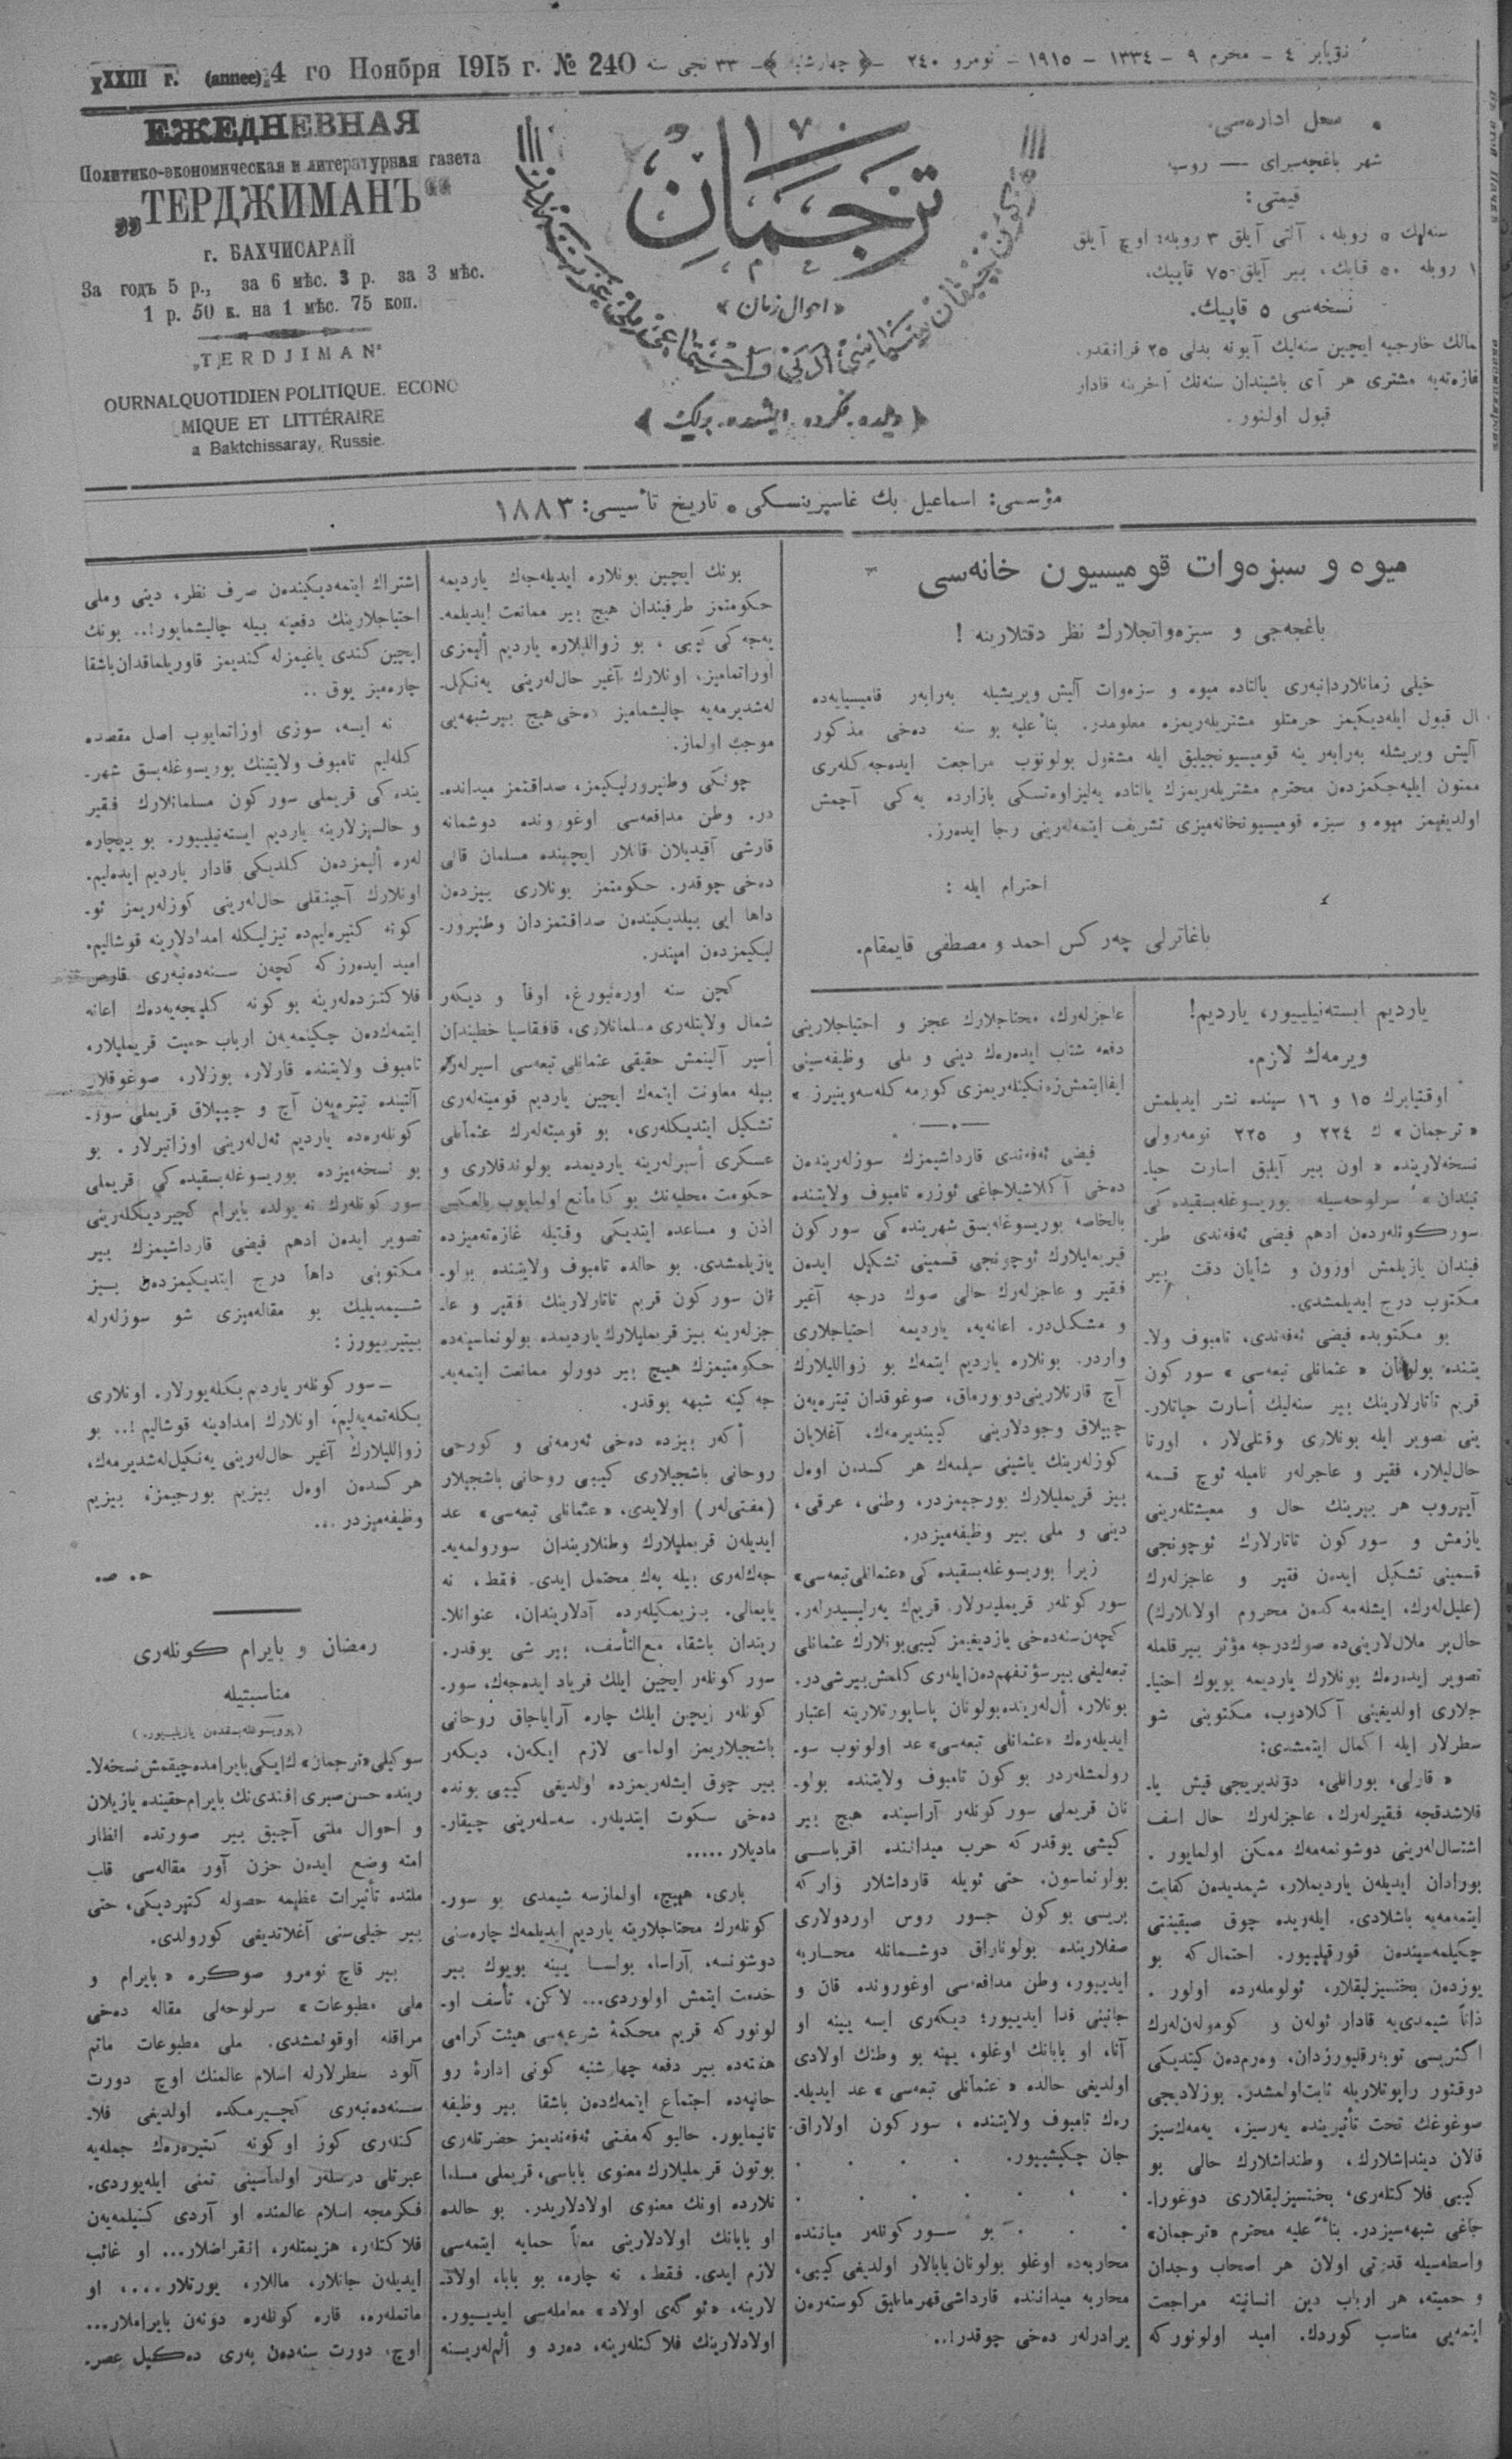 XXXIII г. (annee) 4 го Ноября 1915 г. № 240
٣٣ نجی سنه ﴿ چهارشنبه ﴾ نویابر ٤ - محرم ٩ - ١٣٣٤ - ١٩١٥ - نومرو ٢٤٠
ЕЖЕДНЕВНАЯ
Политико-экономическая и литературная газета
„ТЕРДЖИМАНЪ“
г. БАХЧИСАРАЙ
За годъ 5 р., за 6 мѣс. 3 р. за 3 мѣс.
1 р. 50 к. на 1 мѣс. 75 коп.
„TERDJIMAN“
OURNALQUOTIDIEN POLITIQUE. ECONO
MIQUE ET LITTÉRAIRE
a Baktchissaray, Russie.
ترجمان
« احوال زمان »
﴿ دیلده، فکرده، ایشده، برلیك ﴾
محل اداره‌سی
شهر باغچه‌سرای — روسیه
قیمتی:
سنه‌لیك ٥ روبله، آلتی آیلق ٣ روبله؛ اوچ آیلق
١ روبله ٥٠ قاپك، بیر آیلق ٧٥ قاپیك،
نسخه‌سی ٥ قاپیك.
ممالك خارجیه ایچین سنه‌لیك آبونه بدلی ٢٥ فرانقدر.
غازه‌ته‌یه مشتری هر آی باشیندان سنه‌نك آخرینه قادار
قبول اولنور.
مؤسسی: اسماعیل بك غاسپرینسکی ٥ تاریخ تأسیسی: ١٨٨٣
میوه و سبزه‌وات قومیسیون خانه‌سی
باغچه‌جی و سبزه‌واتجلارك نظر دقتلارینه !
خیلی زمانلاردانبه‌ری یالتاده میوه و سبزه‌وات آلیش ویریشیله به‌رابه‌ر قامیسیایه‌ده
ال قبول ایله‌دیکیمز حرمتلو مشتریله‌ریمزه معلومدر. بنأ علیه بو سنه ده‌خی مذکور
آلیش ویریشله به‌رابه‌ر ینه قومیسیونجیلیق ایله مشغول بولونوب مراجعت ایده‌جه‌کله‌ری
ممنون ایلیه‌جکمزدن محترم مشتریله‌ریمزك یالتاده یه‌لیزاوه‌تسکی بازارده یه‌کی آچمش
اولدیغیمز میوه و سبزه قومیسیونخانه‌میزی تشریف ایتمه‌له‌رینی رجا ایده‌رز.
احترام ایله :
باغاترلی چه‌رکس احمد و مصطفی قایمقام.
یاردیم ایسته‌نیلییور، یاردیم!
ویرمه‌ك لازم.
اوقتیابرك ١٥ و ١٦ سینده نشر ایدیلمش
« ترجمان » ك ٢٢٤ و ٢٢٥ نومه‌رولی
نسخه‌لارینده « اون بیر آیلیق اسارت حیا-
تیندان » سرلوحه‌سیله بوریسوغله‌بسقیده‌کی
سورکونله‌ردن ادهم فیضی ئه‌فه‌ندی طر-
فیندان یازیلمش اوزون و شأیان دقت بیر
مکتوب درج ایدیلمشدی.
بو مکتوبده فیضی ئه‌فه‌ندی، تامبوف ولا-
یتنده بولونان « عثمانلی تبعه‌سی » سورکون
قریم تاتارلارینك بیر سنه‌لیك أسارت حیاتلار-
ینی تصویر ایله بونلاری وقتلی‌لار، اورتا
حال‌لیلار، فقیر و عاجزله‌ر نامیله ئوچ قسمه
آییروب هر بیرینك حال و معیشتله‌رینی
یازمش و سورکون تاتارلارك ئوچونجی
قسمینی تشکیل ایده‌ن فقیر و عاجزله‌رك
(علیل‌له‌رك، ایشله‌مه‌کدن محروم اولانلارك)
حال‌پر ملال‌لارینی‌ده صوك‌درجه مؤثر بیر قلمله
تصویر ایده‌ره‌ك بونلارك یاردیمه بویوك احتیا-
جلاری اولدیغینی آکلادوب، مکتوبنی شو
سطرلار ایله اکمال ایتمشدی:
« قارلی، بورانلی، دوندیریجی قیش یا-
قلاشدقجه فقیرله‌رك، عاجزله‌رك حال اسف
اشتمال‌له‌رینی دوشونمه‌مه‌ك ممکن اولمایور .
بورادان ایدیله‌ن یاردیملار، شیمدیده‌ن کفایت
ایتمه‌مه‌یه باشلادی. ایله‌ریده چوق صیقینتی
چکیلمه‌سیندن قورقیلییور. احتمال که بو
یوزده‌ن بختسیزلیقلار، ئولوملرده اولور .
ذاتاً شیمدی‌یه قادار ئوله‌ن و کومولن‌له‌رك
اکثریسی توبه‌رقلیوزدان، وه‌رم‌دن کیتدیکی
دوقتور راپوتلاریله ثابت‌اولمشدر. بوزلادیجی
صوغوغك تحت تأثیرینده یه‌رسیز، یه‌مه‌ك‌سیز
قالان دینداشلارك، وطنداشلارك حالی بو
کیبی فلاکتله‌ری، بختسیزلیقلاری دوغورا-
جاغی شبهه‌سیزدر. بنأ علیه محترم «ترجمان»
واسطه‌سیله قدرتی اولان هر اصحاب وجدان
و حمیته، هر ارباب دین انسانیته مراجعت
ایتمه‌یی مناسب کوردك. امید اولونورکه
عاجزله‌رك، محتاجلارك عجز و احتیاجلارینی
دفعه شتاب ایده‌ره‌ك دینی و ملی وظیفه‌سینی
فیضی ئه‌فه‌ندی قارداشیمزك سوزله‌رینده‌ن
ده‌خی آکلاشیلاجاغی ئوزره تامبوف ولایتنده
بالخاصه بوریسوغله‌بسق شهرینده‌کی سورکون
قریملیلارك ئوچونجی قسمینی تشکیل ایده‌ن
فقیر و عاجزله‌رك حالی صوك درجه آغیر
و مشکل‌در. اعانه‌یه، یاردیمه احتیاجلاری
واردر. بونلاره یاردیم ایتمه‌ك بو زواللیلارك
آچ قارنلارینی‌دویورماق، صوغوقدان تیتره‌یه‌ن
چیپلاق وجودلارینی کییندیرمه‌ك، آغلایان
کوزله‌رینك یاشینی سیلمه‌ك هر کسدن اوه‌ل
بیز قریملیلارك بورجیمزدر، وطنی، عرقی،
دینی و ملی بیر وظیفه‌میزدر.
زیرا بوریسوغله‌بسقیده‌کی «عثمانلی‌تبعه‌سی»
سورکونله‌ر قریملیدرلار، قریم‌ك یه‌رلیسیدرلر.
کچه‌ن‌سنه‌ده‌خی یازدیغیمز کیبی‌بونلارك عثمانلی
تبعه‌لیغی بیرسؤتفهم‌دن‌ایله‌ری کلمش‌بیرشی‌در.
بونلار، أل‌له‌رینده‌بولونان پاساپورتلارینه اعتبار
ایدیله‌ره‌ك «عثمانلی تبعه‌سی» عد اولونوب سو-
رولمشله‌ردر بوکون تامبوف ولایتنده بولو-
نان قریملی سورکونله‌ر آراسینده هیچ بیر
کیشی یوقدرکه حرب میداننده اقرباسی
بولونماسون. حتی ئویله قارداشلار وارکه
بریسی بوکون جسور روس اوردولاری
صفلارینده بولوناراق دوشمانله محاربه
ایدییور، وطن مدافعه‌سی اوغورونده قان و
جانینی فدا ایدییور؛ دیکه‌ری ایسه یینه او
آنا، او بابانك اوغلو، یینه بو وطنك اولادی
اولدیغی حالده « عثمانلی تبعه‌سی » عد ایدیله-
ره‌ك تامبوف ولایتنده ، سورکون اولاراق
جان چکیشییور.
بو سورکونله‌ر میاننده
محاربه‌ده اوغلو بولونان‌بابالار اولدیغی کیبی،
محاربه میداننده قارداشی‌قهرمانلیق کوسته‌ره‌ن
برادرله‌ر ده‌خی چوقدر!..
بونك ایچین بونلاره ایدیله‌جه‌ك یاردیمه
حکومتمز طرفیندان هیچ بیر ممانعت ایدیلمه-
یه‌جه‌کی کیبی ، بو زواللیلاره یاردیم ألیمزی
اوزاتمامیز، اونلارك آغیر حال‌له‌رینی یه‌نکیل-
له‌شدیرمه‌یه چالیشمامیز ده‌خی هیچ بیر شبهه‌یی
موجب اولماز.
چونکی وطنپرورلیکیمز، صداقتمز میدانده-
در. وطن مدافعه‌سی اوغورونده دوشمانه
قارشی آقیدیلان قانلار ایچینده مسلمان قانی
ده‌خی چوقدر. حکومتمز بونلاری بیزده‌ن
داها ایی بیلدیکینده‌ن صداقتمزدان وطنپرور-
لیکیمزدن امیندر.
کچن سنه اوره‌نبورغ، اوفا و دیکه‌ر
شمال ولایتله‌ری مسلمانلاری، قافقاسیا خطیندان
أسیر آلینمش حقیقی عثمانلی تبعه‌سی اسیرله‌ره
بیله معاونت ایتمه‌ك ایچین یاردیم قومیته‌له‌ری
تشکیل ایتدیکله‌ری، بو قومیته‌له‌رك عثمانلی
عسکری أسیرله‌رینه یاردیمده بولوندقلاری و
حکومت محلیه‌نك بوکا مانع اولمایوب بالعکس
اذن و مساعده ایتدیکی وقتیله غازه‌ته‌میزده
یازیلمشدی. بو حالده تامبوف ولایتنده بولو-
نان سورکون قریم تاتارلارینك فقیر و عا-
جزله‌رینه بیز قریملیلارك یاردیمده بولونماسینه‌ده
حکومتیمزك هیچ بیر دورلو ممانعت ایتمه‌یه-
جه‌کینه شبهه یوقدر.
أکه‌ر بیزده ده‌خی ئه‌رمه‌نی و کورجی
روحانی باشچیلاری کیبی روحانی باشچیلار
(مفتی‌له‌ر) اولایدی، «عثمانلی تبعه‌سی» عد
ایدیله‌ن قریملیلارك وطنلاریندان سورولمه‌یه-
جه‌ك‌له‌ری بیله په‌ك محتمل ایدی. فقط ، نه
یاپمالی. بیزیمکیله‌رده آدلاریندان، عنوانلا-
ریندان باشقا، مع‌التأسف، بیر شی یوقدر.
سورکونله‌ر ایچین ایلك فریاد ایده‌جه‌ك، سور-
کونله‌ر ایچین ایلك چاره آرایاجاق روحانی
باشچیلاریمز اولماسی لازم ایکه‌ن، دیکه‌ر
بیر چوق ایشله‌ریمزده اولدیغی کیبی بونده
ده‌خی سکوت ایتدیله‌ر. سه‌سله‌رینی چیقار-
مادیلار .....
باری، هیچ، اولمازسه شیمدی بو سور-
کونله‌رك محتاجلارینه یاردیم ایدیلمه‌ك چاره‌سنی
دوشونسه، آراسا، بولسا یینه بویوك بیر
خدمت ایتمش اولوردی... لاکن، تأسف او-
لونورکه قریم محکمهٔ شرعیه‌سی هیئت کرامی
هفته‌ده بیر دفعه چهارشنبه کونی ادارهٔ رو
حانیه‌ده اجتماع ایتمه‌ك‌ده‌ن باشقا بیر وظیفه
تانیمایور. حالبوکه مفتی ئه‌فه‌ندیمز حضرتله‌ری
بوتون قریملیلارك معنوی باباسی، قریملی مسلما
نلارده اونك معنوی اولادلاریدر. بو حالده
او بابانك اولادلارینی معناً حمایه ایتمه‌سی
لازم ایدی. فقط، نه چاره، بو بابا، اولاد-
لارینه، «ئوکه‌ی اولاد» معامله‌سی ایدییور.
اولادلارینك فلاکتله‌رینه، ده‌رد و ألم‌له‌رینه
إشتراك ایتمه‌دیکینده‌ن صرف نظر، دینی وملی
احتیاجلارینك دفعینه بیله چالیشمایور!.. بونك
ایچین کندی یاغیمزله کندیمز قاوریلماقدان‌باشقا
چاره‌میز یوق ..
نه ایسه، سوزی اوزاتمایوب اصل مقصده
کله‌لیم تامبوف ولایتینك بوریسوغله‌بسق شهر-
ینده‌کی قریملی سورکون مسلمانلارك فقیر
و حالسیزلارینه یاردیم ایسته‌نیلییور. بو بیچاره
له‌ره ألیمزده‌ن کلدیکی قادار یاردیم ایده‌لیم.
اونلارك آجینقلی حال‌له‌رینی کوزله‌ریمز ئو-
کونه کتیره‌لیم‌ده تیزلیکله امدادلارینه قوشالیم.
امید ایده‌رزکه کچه‌ن سنه‌ده‌نبه‌ری قارص
فلاکتزده‌له‌رینه بوکونه کلینجه‌یه‌ده‌ك اعانه
ایتمه‌ك‌ده‌ن چکینمه‌یه‌ن ارباب حمیت قریملیلار،
تامبوف ولایتنده قارلار، بوزلار، صوغوقلار
آلتینده تیتره‌یه‌ن آچ و چیپلاق قریملی سور-
کونله‌ره‌ده یاردیم ئه‌ل‌له‌رینی اوزاتیرلار. بو
بو نسخه‌میزده بوریسوغله‌بسقیده‌کی قریملی
سورکونله‌رك نه یولده بایرام کچیردیکله‌رینی
تصویر ایده‌ن ادهم فیضی قارداشیمزك بیر
مکتوبنی داها درج ایتدیکیمزده‌ن بیز
شیمدیلیك بو مقاله‌میزی شو سوزله‌رله
بیتیرییورز :
— سورکونله‌ر یاردیم بکله‌یورلار. اونلاری
بکله‌تمه‌یه‌لیم، اونلارك إمدادینه قوشالیم!.. بو
زواللیلارك آغیر حال‌له‌رینی یه‌نکیل‌له‌شدیرمه‌ك،
هرکسدن اوه‌ل بیزیم بورجیمز، بیزیم
وظیفه‌میزدر ...
ح. ص.
رمضان و بایرام کونله‌ری
مناسبتیله
(بوریسوغله‌بسقدن یازیلییور.)
سوکیلی «ترجمان» ك‌ایکی بایرامده‌چیقمش نسخه‌لا-
رینده حسن‌صبری افندی‌نك بایرام‌حقینده یازیلان
و احوال ملتی آچیق بیر صورتده انظار
امته وضع ایده‌ن حزن آور مقاله‌سی قلب
ملتده تأثیرات عظیمه حصوله کتیردیکی، حتی
بیر خیلی‌سنی آغلاتدیغی کورولدی.
بیر قاچ نومرو صوکره « بایرام و
ملی مطبوعات » سرلوحه‌لی مقاله ده‌خی
مراقله اوقونمشدی. ملی مطبوعات ماتم
آلود سطرلارله اسلام عالمنك اوچ دورت
سنه‌ده‌نبه‌ری کچیرمکده اولدیغی فلا-
کتله‌ری کوز اوکونه کتیره‌ره‌ك جمله‌یه
عبرتلی درسله‌ر اولماسینی تمنی ایله‌یوردی.
فکرمجه اسلام عالمنده او آردی کسیلمه‌یه‌ن
فلاکتله‌ر، هزیمتله‌ر، إنقراضلار... او غائب
ایدیله‌ن جانلار، ماللار، یورتلار....، او
ماتمله‌ره، قاره کونله‌ره دونه‌ن بایراملار...
اوچ، دورت سنه‌ده‌ن به‌ری ده‌کیل عصر-